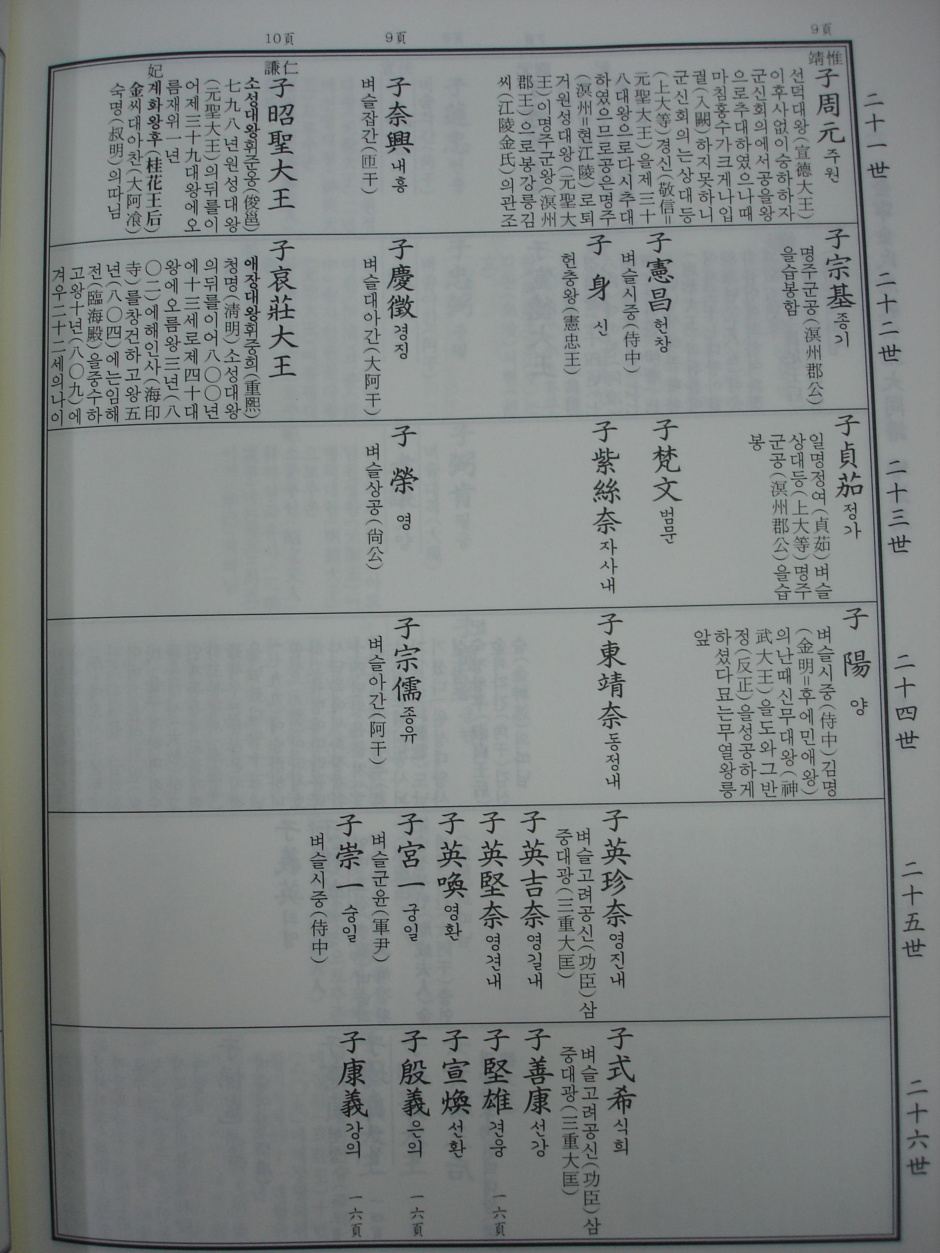 9頁
二十一世
惟靖
子周元 주원
선덕대왕(宣德大王)
이후사없이승하하자
군신회의에서공을왕
으로추대하였으나때
마침홍수가크게나입
궐(入闕)하지못하니
군신회의는상대등
(上大等)경신(敬信=
元聖大王)을제三十
八대왕으로다시추대
하였으므로공은명주
(溟州=현江陵)로퇴
거원성대왕(元聖大
王)이명주군왕(溟州
郡王)으로봉강릉김
씨(江陵金氏)의관조
9頁
子奈興 내흥
벼슬잡간(匝干)
10頁
仁謙
子昭聖大王
소성대왕휘준옹(俊邕)
七九八년원성대왕
(元聖大王)의뒤를이
어제三十九대왕에오
름재위一년
妃 계화왕후(桂花王后)
金씨대아찬(大阿飡)
숙명(叔明)의따님
二十二世
子宗基 종기
명주군공(溟州郡公)
을습봉함
子憲昌 헌창
벼슬시중(侍中)
子身 신
헌충왕(憲忠王)
子慶徵 경징
벼슬대아간(大阿干)
子哀莊大王
애장대왕휘중희(重熙)
청명(淸明)소성대왕
의뒤를이어八〇〇년
에十三세로제四十대
왕에오름왕三년(八
〇二)에해인사(海印
寺)를창건하고왕五
년(八〇四)에는임해
전(臨海殿)을중수하
고왕十년(八〇九)에
겨우二十二세의나이
二十三世
子貞茄 정가
일명정여(貞茹)벼슬
상대등(上大等)명주
군공(溟州郡公)을습
봉
子梵文 범문
子紫絲奈 자사내
子榮 영
벼슬상공(尙公)
二十四世
子陽 양
벼슬시중(侍中)김명
(金明=후에민애왕)
의난때신무대왕(神
武大王)을도와그반
정(反正)을성공하게
하셨다묘는무열왕릉
앞
子東靖奈 동정내
子宗儒 종유
벼슬아간(阿干)
二十五世
子英珍奈 영진내
벼슬고려공신(功臣)삼
중대광(三重大匡)
子英吉奈 영길내
子英堅奈 영견내
子英喚 영환
子宮一 궁일
벼슬군윤(軍尹)
子崇一 숭일
벼슬시중(侍中)
二十六世
子式希 식희
벼슬고려공신(功臣)삼
중대광(三重大匡)
子善康 선강
子堅雄 견웅
一六頁
子宣煥 선환
子殷義 은의
一六頁
子康義 강의
一六頁